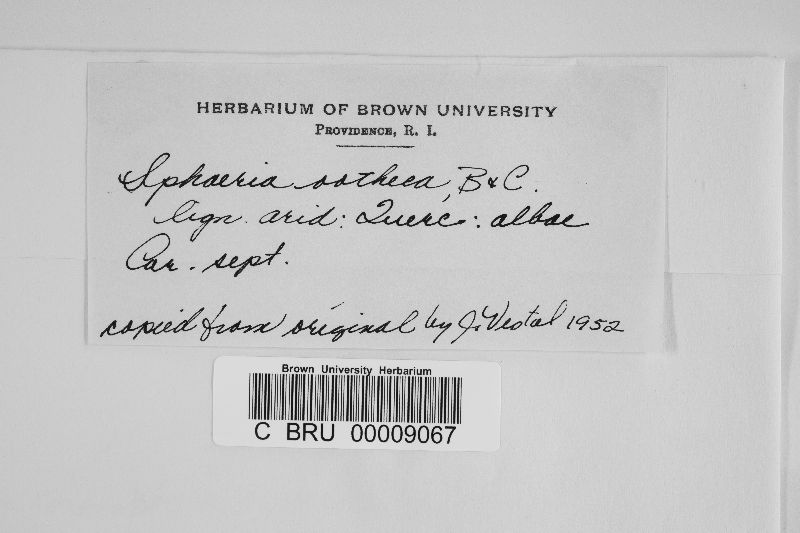 HERBARIUM OF BROWN UNIVERSITY
PROVIDENCE, R. I.
Sphaeria ootheca, B & C.
lign. arid: Querc: albae
Car. sept.
copied from original by J. Vestal 1952
Brown University Herbarium
C BRU 00009067